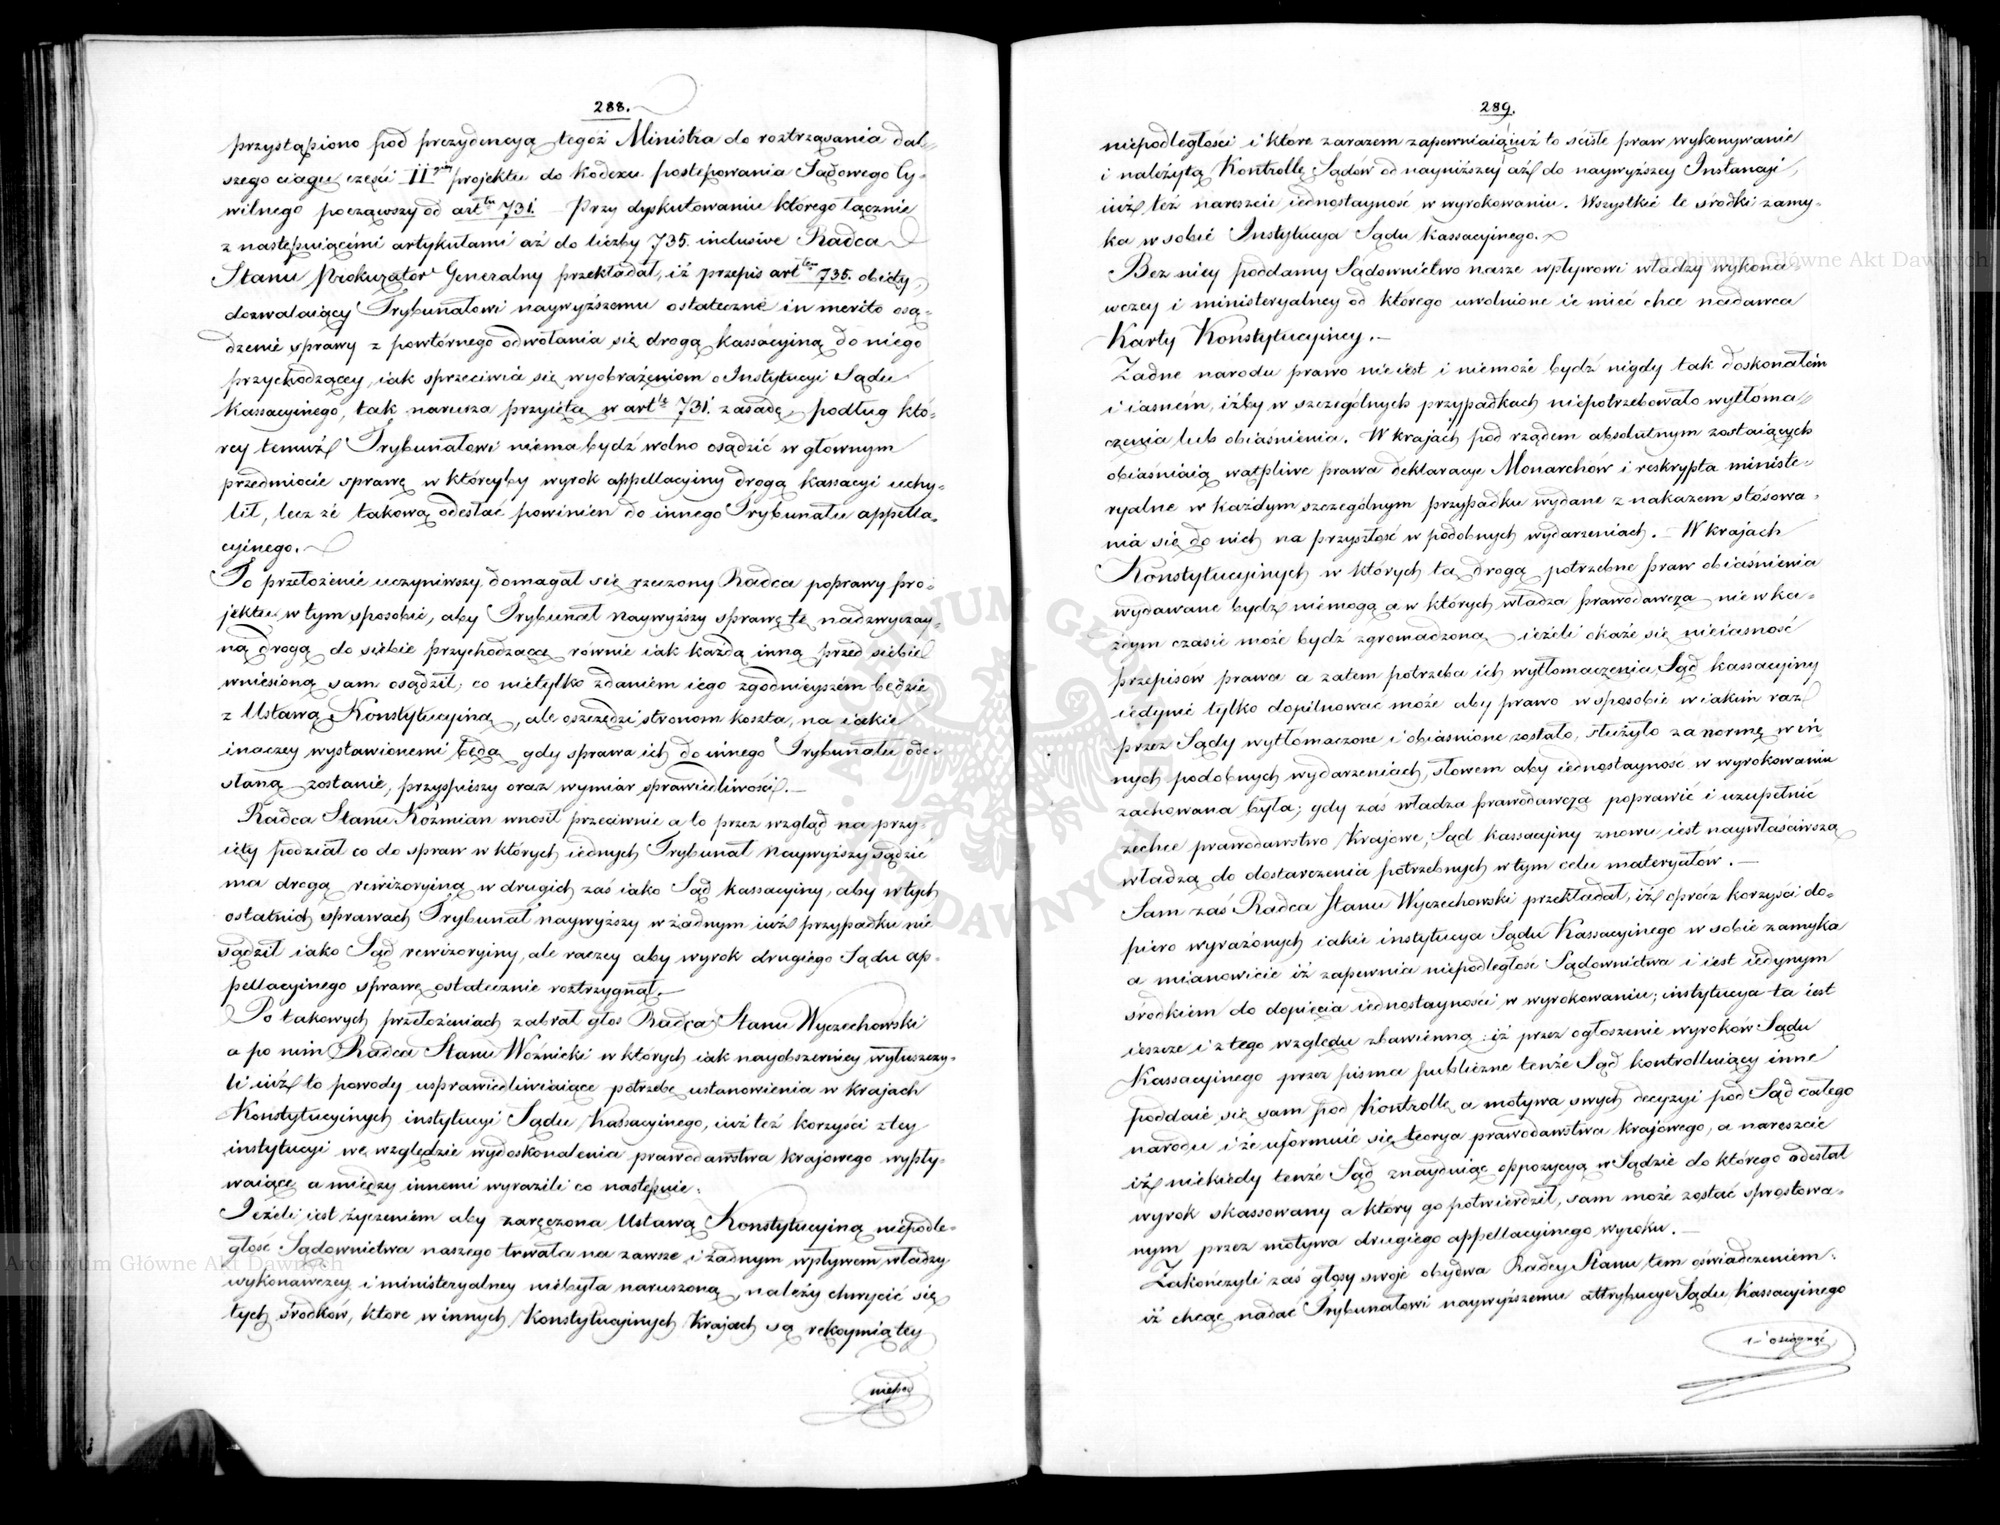 288.
przystąpiono pod prezydencyą tegóż Ministra do roztrząsania dal-
szego ciągu części II giey projektu do Kodexu postępowania Sądowego Cy-
wilnego począwszy od art łu 731. Przy dyskutowaniu którego łącznie
z następuiącémi artykułami aż do liczby 735. inclusive Radca
Stanu Prokurator Generalny przekładał, iż przepis art łem 735. obięty,
dozwalaiący Trybunałowi naywyższemu ostateczné in merito osą-
dzenie sprawy z powtórnego odwołania się drogą kassacyiną do niego
przychodzącey, iak sprzeciwia się wyobrażeniom o Instytucyi Sądu
Kassacyinego, tak narusza przyiętą w art le 731. zasadę, podług któ-
rey temuż Trybunałowi niema bydź wolno osądzić w głównym
przedmiocie sprawę w któreyby wyrok appellacyiny drogą kassacyi uchy-
lił, lecz że takową odesłać powinien do innego Trybunału appella-
cyinego.
To przełożenie uczyniwszy domagał się rzeczony Radca poprawy pro-
jektu w tym sposobie, aby Trybunał Naywyższy sprawę tę nadzwyczay-
ną drogą do siebie przychodzącą równie iak każdą inną przed siebie
wniesioną sam osądził, co nietylko zdaniem iego zgodnieyszém będzie
z Ustawą Konstytucyiną, ale oszczędzi stronom koszta, na iakie
inaczey wystawionemi będą gdy sprawa ich do innego Trybunału ode-
słaną zostanie, przyspieszy oraz wymiar sprawiedliwości.
Radca Stanu Koźmian wnosił przeciwnie a to przez wzgląd na przy-
ięty podział co do spraw w których iednych Trybunał Naywyższy sądzić
ma drogą rewizoryiną w drugich zaś iako Sąd kassacyiny, aby w tych
ostatnich sprawach Trybunał naywyższy w żadnym iuż przypadku nie
sądził iako Sąd rewizoryiny, ale raczey aby wyrok drugiego Sądu ap-
pellacyinego sprawę ostatecznie roztrzygnął.
Po takowych przełożeniach zabrał głos Radca Stanu Wyczechowski
a po nim Radca Stanu Woźnicki w których iak nayobszerniey wyłuszczy-
li iuż to powody usprawiedliwiaiące potrzebę ustanowienia w krajach
Konstytucyinych instytucyi Sądu Kassacyinego, iuż też korzyści z tey
instytucyi we względzie wydoskonalenia prawodawstwa krajowego wypły-
waiące a między innemi wyrazili co następuie:
Jeżeli iest życzeniem aby zaręczona Ustawą Konstytucyiną niepodle-
głość Sądownictwa naszego trwała na zawsze i żadnym wpływem władzy
wykonawczey i ministeryalney niebyła naruszoną, należy chwycić się
tych środków, które w innych Konstytucyinych Krajach są rękoymią tey
niepod
289.
niepodległości i które zarazem zapewniaią iuż to ścisłe praw wykonywanie
i należytą Kontrollę Sądów od nayniższey aż do naywyższey Instancyi,
iuż też nareszcie iednostayność w wyrokowaniu. Wszystkie te środki zamy-
ka w sobie Instytucya Sądu Kassacyinego.
Bez niey poddamy Sądownictwo nasze wpływowi władzy wykona-
wczey i ministeryalney od którego uwolnione ie mieć chce nadawca
Karty Konstytucyiney.
Żadne narodu prawo nie iest i niemoże bydź nigdy tak doskonałém
i iasném, iżby w szczególnych przypadkach niepotrzebowało wytłóma-
czenia lub obiaśnienia. W krajach pod rządem absolutnym zostaiących
obiaśniaią wątpliwe prawa deklaracye Monarchów i reskrypta ministe-
ryalne w każdym szczególnym przypadku wydane z nakazem stósowa-
nia się do nich na przyszłość w podobnych wydarzeniach. W krajach
Konstytucyinych w których tą drogą potrzebne praw obiaśnienia
wydawane bydź niemogą a w których władza prawodawcza nie w ka-
żdym czasie może bydź zgromadzoną ieżeli okaże się nieiasność
przepisów prawa a zatem potrzeba ich wytłomaczenia, Sąd kassacyiny
iedynie tylko dopilnować może aby prawo w sposobie w iakim raz
przez Sądy wytłómaczone i obiaśnione zostało, służyło za normę w in-
nych podobnych wydarzeniach, słowem aby iednostayność w wyrokowaniu
zachowana była; gdy zaś władza prawodawcza poprawić i uzupełnić
zechce prawodawstwo Krajowe, Sąd kassacyiny znowu iest naywłaściwszą
władzą do dostarczenia potrzebnych w tym celu materyałów.
Sam zaś Radca Stanu Wyczechowski przekładał, iż oprócz korzyści do-
piero wyrażonych iakie instytucya Sądu Kassacyinego w sobie zamyka
a mianowicie iż zapewnia niepodległość Sądownictwa i iest iedynym
środkiem do dopięcia iednostayności w wyrokowaniu; instytucya ta iest
ieszcze i z tego względu zbawienną iż przez ogłoszenie wyroków Sądu
Kassacyinego przez pisma publiczne tenże Sąd kontrolluiący inne
poddaie się sam pod Kontrollę a motywa swych decyzyi pod Sąd całego
narodu i że uformuie się teorya prawodawstwa krajowego, a nareszcie
iż niekiedy tenże Sąd znayduiąc oppozycyą w Sądzie do którego odesłał
wyrok skassowany a który go potwierdził, sam może zostać sprostowa-
nym przez motywa drugiego appellacyinego wyroku.
Zakończyli zaś głosy swoje obydwa Radcy Stanu tem oświadczeniem:
iż chcąc nadać Trybunałowi naywyższemu attrybucye Sądu Kassacyinego
i osiągnąć